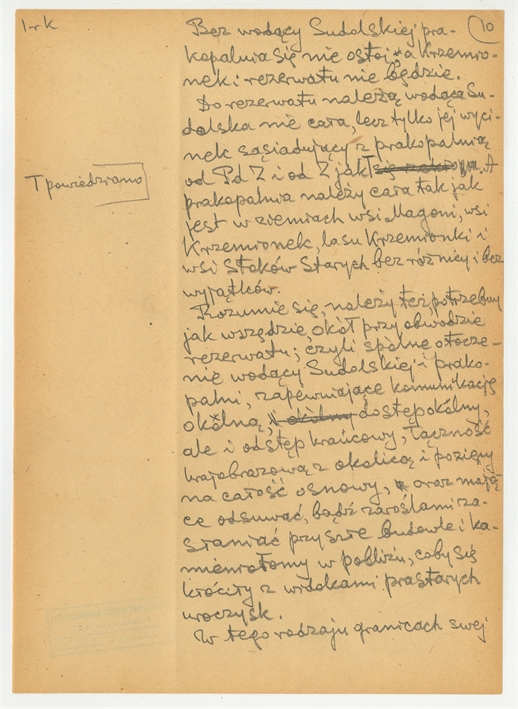 1rk
10
Bez wodący Sudolskiej pra-
kopalnia się nie ostoi, a Krzemio-
nek i rezerwatu nie będzie.
Do rezerwatu należą wodąca Su-
dolska nie cała, lecz tylko jej wyci-
nek sąsiadujący z prakopalnią
od Pd Z i od Z jak T
A
Tpowiedziano
prakopalnia należy cała tak jak
jest w ziemiach wsi Magoni, wsi
Krzemionek, lasu Krzemionki i
wsi Stoków Starych bez różnicy i bez
wyjątków.
Rozumie się, należy też, potrzebny
jak wszędzie, okół przy obwodzie
rezerwatu; czyli spólne otocze-
nie wodący Sudolskiej i prako-
palni, zapewniające komunikację
okólną, okólny dostęp okólny,
ale i odstęp krańcowy, łączność
krajobrazową z okolicą i pozięry
na całość osnowy, oraz mają
ce odsuwać, bądź zaroślami za-
słaniać przyszłe budowle i ka-
mieniołomy w pobliżu, coby się
kłóciły z widokami prastarych
uroczysk.
W tego rodzaju granicach swej